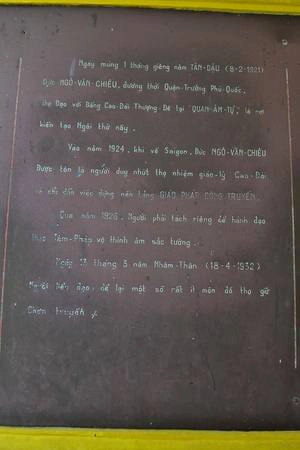 Ngày mùng 1 tháng giêng năm TÂN-DẬU (8-2-1921)
Đức NGÔ-VĂN-CHIÊU, đương thời Quận-Trưởng Phú-Quốc,
thọ Đạo với Đấng Cao-Đài Thượng-Đế tại "QUAN-ÂM-TỰ," là nơi
kiến tạo Ngài thờ nầy.
Vào năm 1924, khi về Saigon, Đức NGÔ-VĂN-CHIÊU
được tôn là người duy nhứt thọ nhiệm giáo-lý Cao-Đài
và chỉ dẫn việc dựng nên bằng GIÁO PHÁP CÔNG TRUYỀN.
Qua năm 1926, Người phải tách riêng để hành đạo
theo Tâm-Pháp vô thinh âm sắc tướng.
Ngày 13 tháng 3 năm Nhâm-Thân (18-4-1932)
Người liễu đạo, để lại một số rất ít môn đồ thọ giữ
Chơn truyền